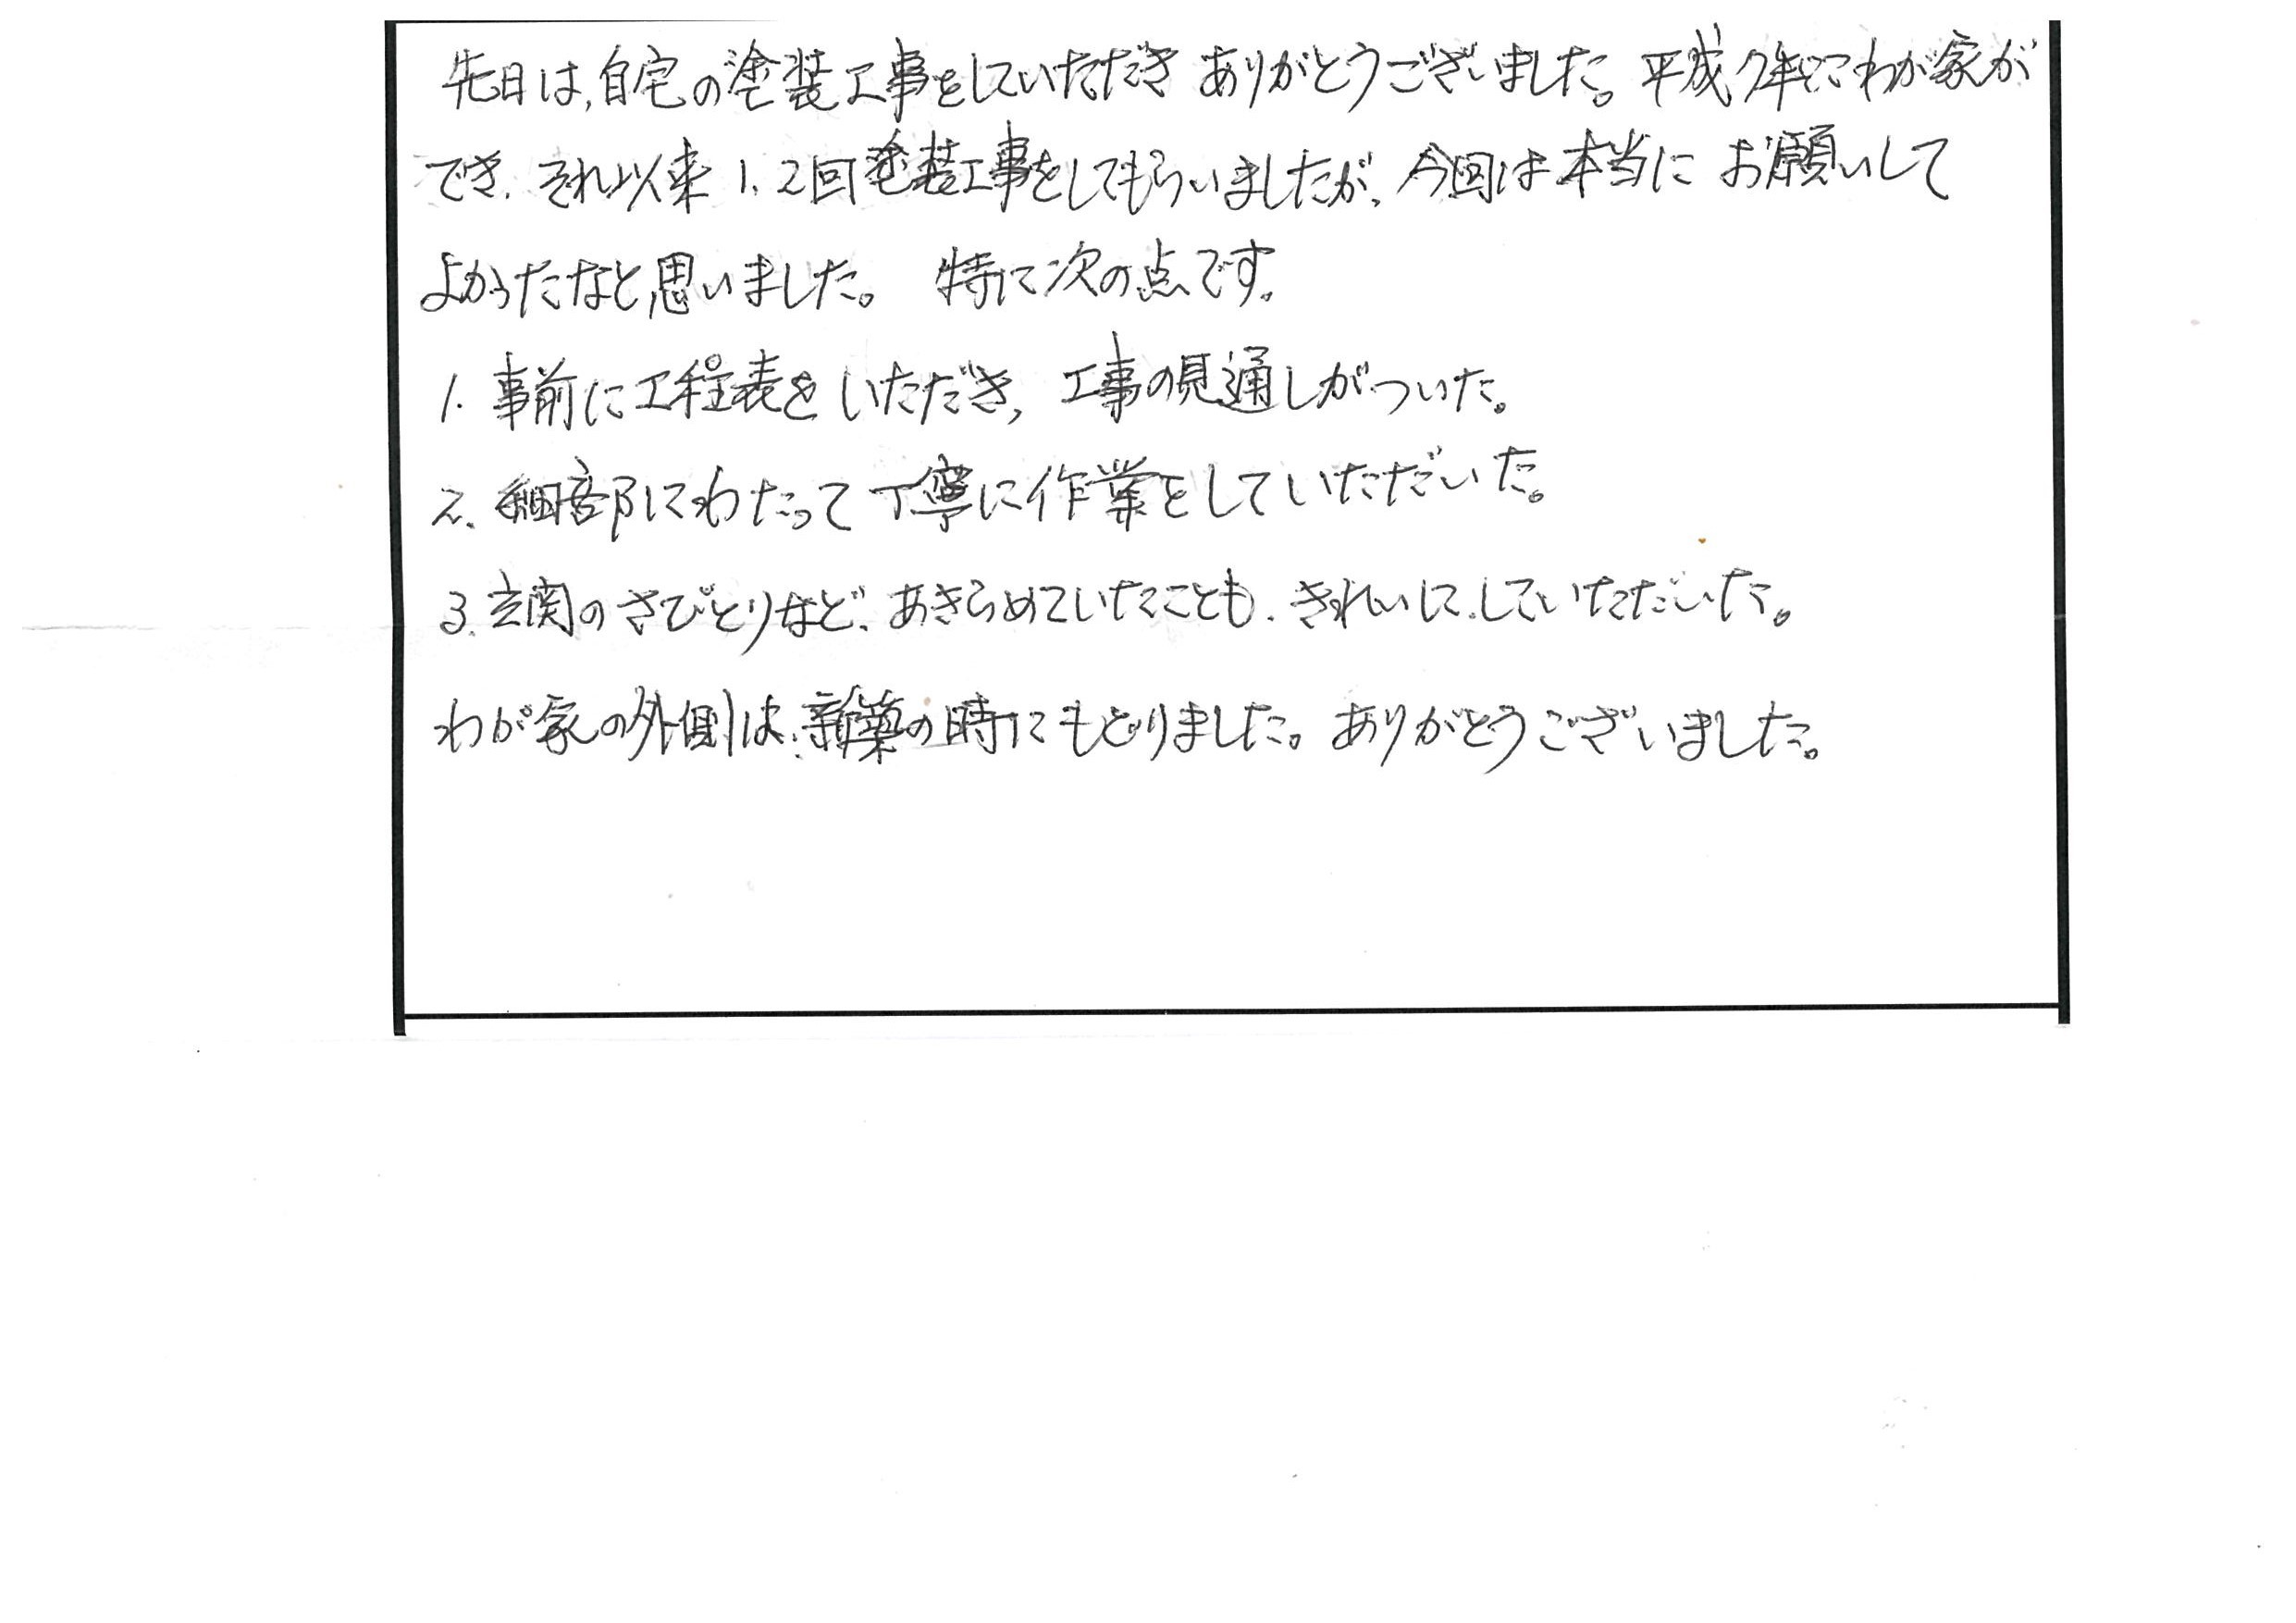 先日は、自宅の塗装工事をしていただき ありがとうございました。平成7年にわが家が
でき、それ以来1、2回塗装工事をしてもらいましたが、今回は本当に お願いして
よかったなと思いました。 特に次の点です。
1. 事前に工程表をいただき、工事の見通しがついた。
2. 細部にわたって丁寧に作業をしていただいた。
3. 玄関のさびとりなど、あきらめていたことも、きれいにしていただいた。
わが家の外側は、新築の時にもどりました。ありがとうございました。